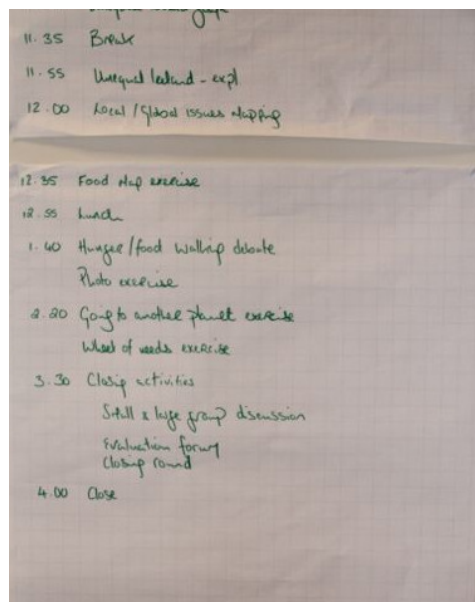 11.35 Break
11.55 Unequal Ireland - expl.
12.00 Local / Global issues Mapping
12.35 Food Map exercise
12.55 Lunch
1.40 Hunger / food walking debate
Photo exercise
2.20 Going to another planet exercise
Wheel of needs exercise
3.30 Closing activities
Small & large group discussion
Evaluation forms
Closing round
4.00 Close